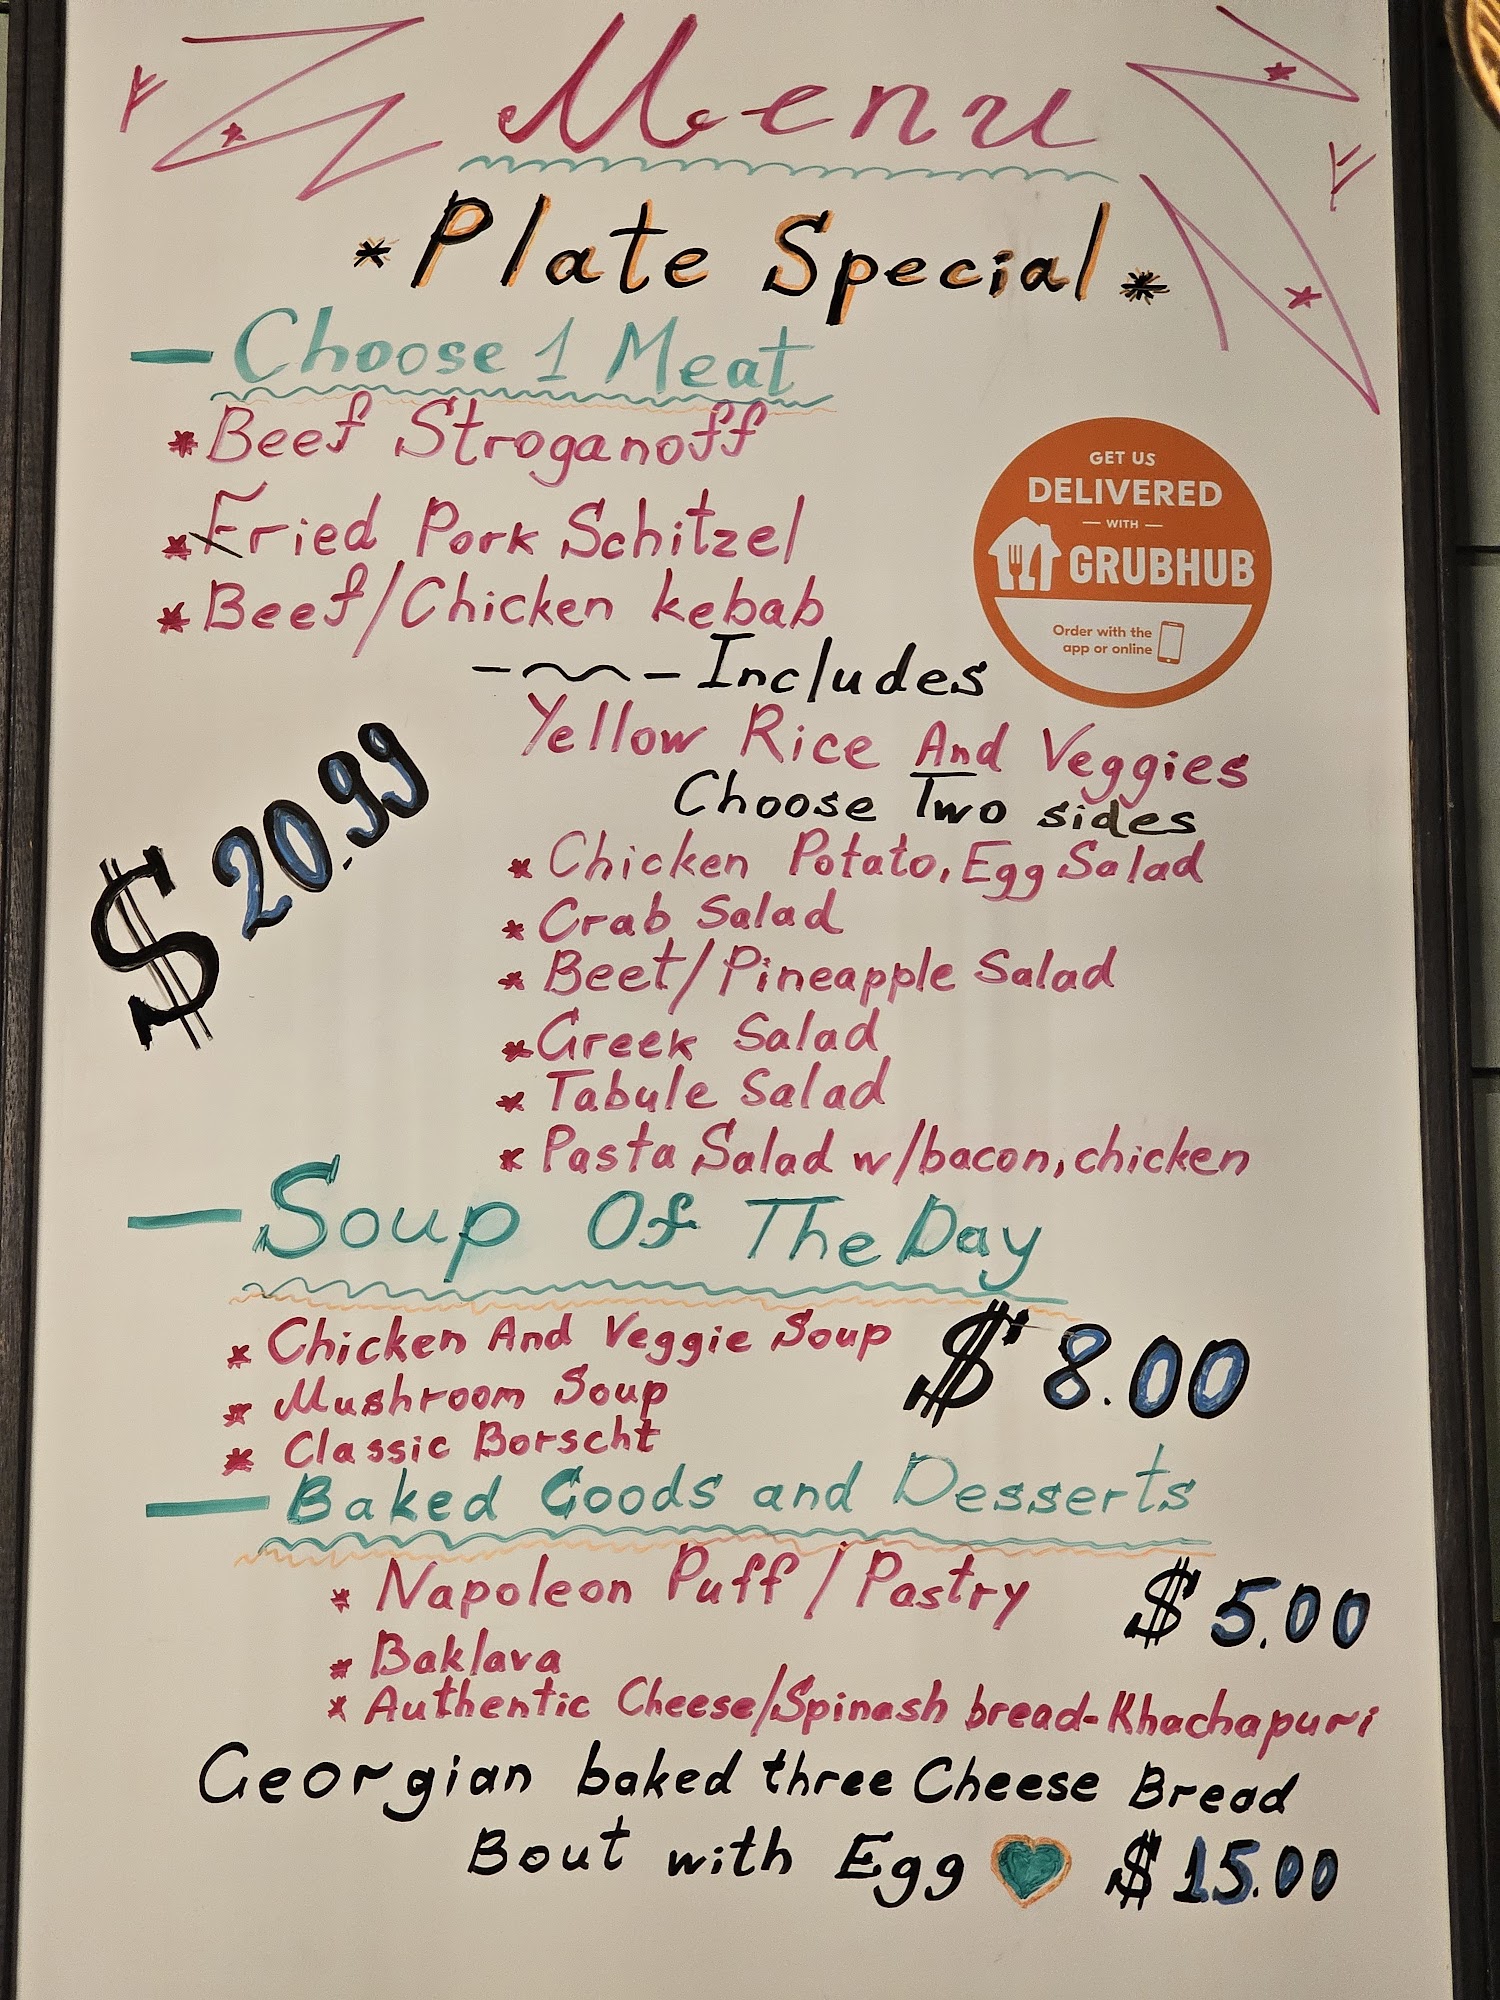 Menu
*Plate Special*
— Choose 1 Meat
* Beef Stroganoff
* Fried Pork Schitzel
* Beef/Chicken kebab
GET US
DELIVERED
— WITH —
GRUBHUB
Order with the
app or online
Includes
Yellow Rice And Veggies
Choose Two sides
$20.99
* Chicken Potato, Egg Salad
* Crab Salad
* Beet/Pineapple Salad
* Greek Salad
* Tabule Salad
* Pasta Salad w/bacon, chicken
— Soup Of The Day
* Chicken And Veggie Soup
* Mushroom Soup
* Classic Borscht
$8.00
— Baked Goods and Desserts
* Napoleon Puff/Pastry $5.00
* Baklava
* Authentic Cheese/Spinash bread-Khachapuri
Georgian baked three Cheese Bread
Bout with Egg $15.00